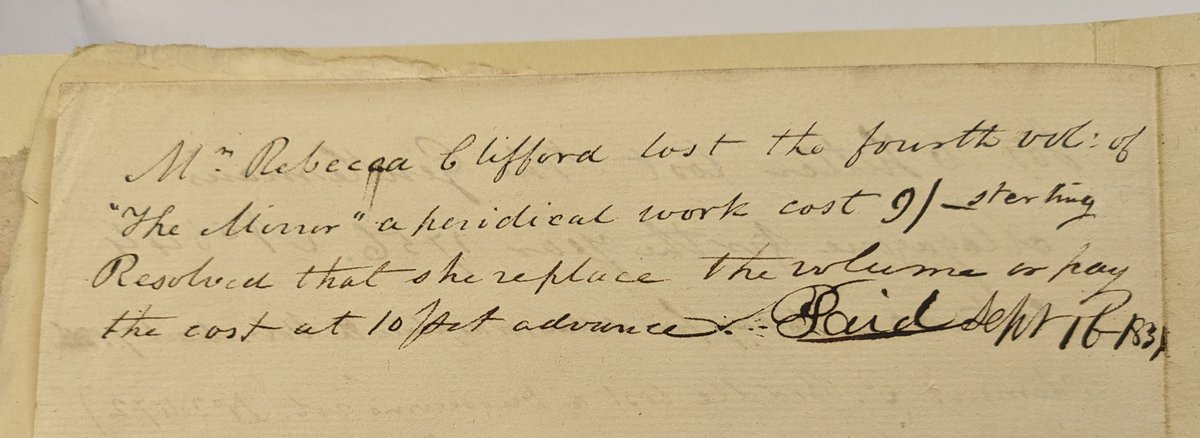 Mrs Rebecca Clifford lost the fourth vol: of
"The Mirror" a peridical work cost 9/ sterling
Resolved that she replace the volume or pay
the cost at 10 pct advance. Paid Sept 16 1831